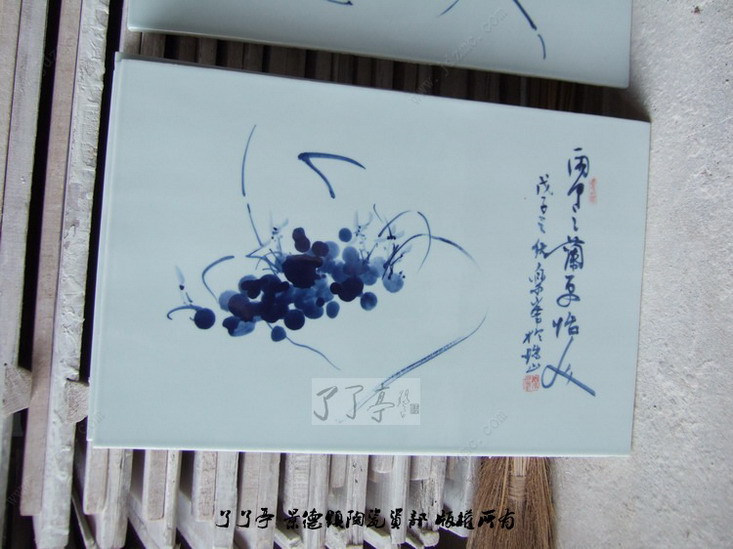 雨之蘭更怡人
戊子之秋於珠山
了了亭
了了亭 景德镇陶瓷资部 版权所有